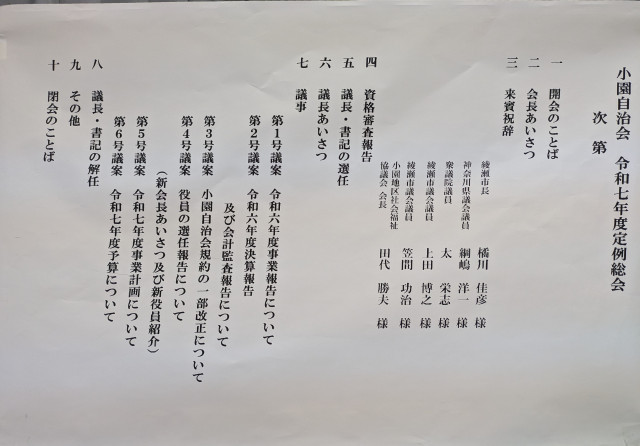 小園自治会　令和七年度定例総会
次　第
一　開会のことば
二　会長あいさつ
三　来賓祝辞
綾瀬市長　橘川　佳彦　様
神奈川県議会議員　綱嶋　洋一　様
衆議院議員　太　栄志　様
綾瀬市議会議員　上田　博之　様
綾瀬市議会議員　笠間　功治　様
小園地区社会福祉
協議会　会長　田代　勝夫　様
四　資格審査報告
五　議長・書記の選任
六　議長あいさつ
七　議事
第1号議案　令和六年度事業報告について
第2号議案　令和六年度決算報告
及び会計監査報告について
第3号議案　小園自治会規約の一部改正について
第4号議案　役員の選任報告について
（新会長あいさつ及び新役員紹介）
第5号議案　令和七年度事業計画について
第6号議案　令和七年度予算について
八　議長・書記の解任
九　その他
十　閉会のことば